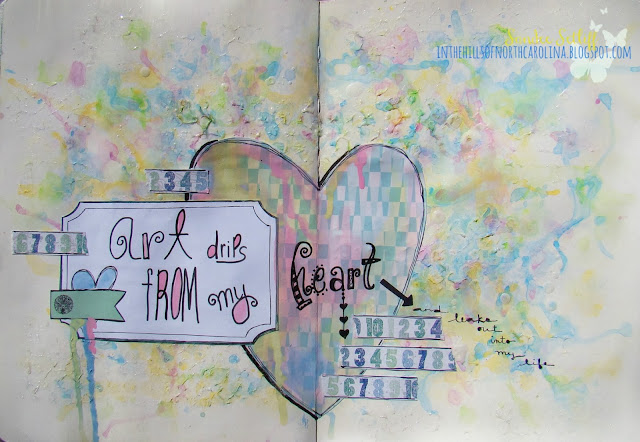 INTHEHILLSOFNORTHCAROLINA.BLOGSPOT.COM
345
6789
art drips
fROM my
heart
and
leaks
out
into
my
life
101234
23456789
56789